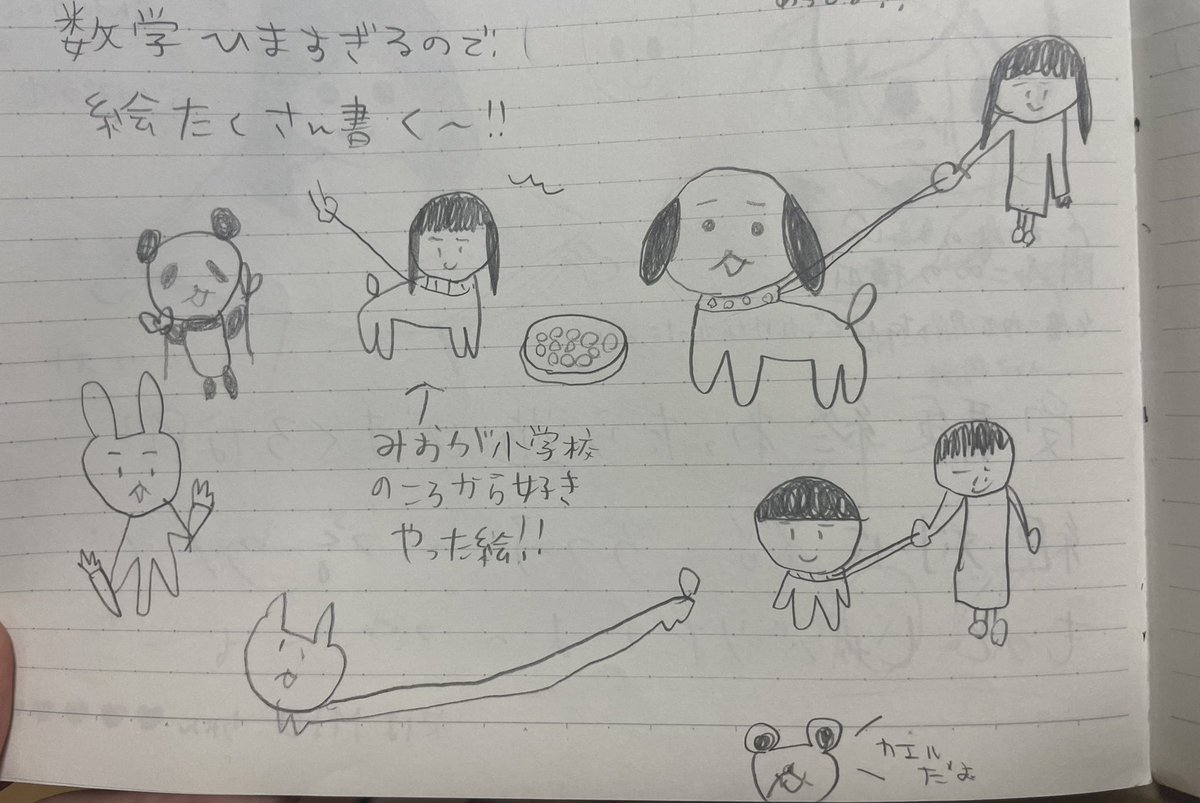 数学ひますぎるので!
絵たくさん書く〜!!
↑
みおが小学校
のころから好き
やった絵!!
カエル
だよ